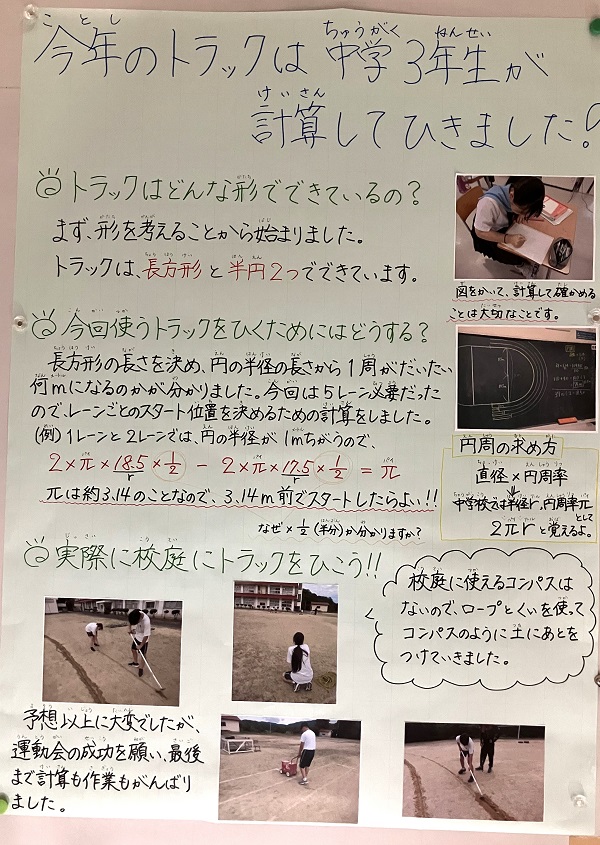 今年のトラックは中学3年生が
計算してひきました！
トラックはどんな形でできているの？
まず、形を考えることから始まりました。
トラックは、長方形と半円2つでできています。
図をかいて、計算して確かめる
ことは大切なことです。
今回使うトラックをひくためにはどうする？
長方形の長さを決め、円の半径の長さから1周がだいたい
何mになるのかが分かりました。今回は5レーン必要だった
ので、レーンごとのスタート位置を決めるための計算をしました。
(例)1レーンと2レーンでは、円の半径が1mちがうので、
2×π×18.5×1/2 － 2×π×17.5×1/2 ＝π
r r
πは約3.14のことなので、3.14m前でスタートしたらよい!!
なぜ×1/2(半分)か分かりますか？
円周の求め方
直径×円周率
中学校では半径r、円周率π
として
2πrと覚えるよ。
実際に校庭にトラックをひこう!!
校庭に使えるコンパスは
ないので、ロープとくいを使って
コンパスのように土にあとを
つけていきました。
予想以上に大変でしたが、
運動会の成功を願い、最後
まで計算も作業もがんばり
ました。